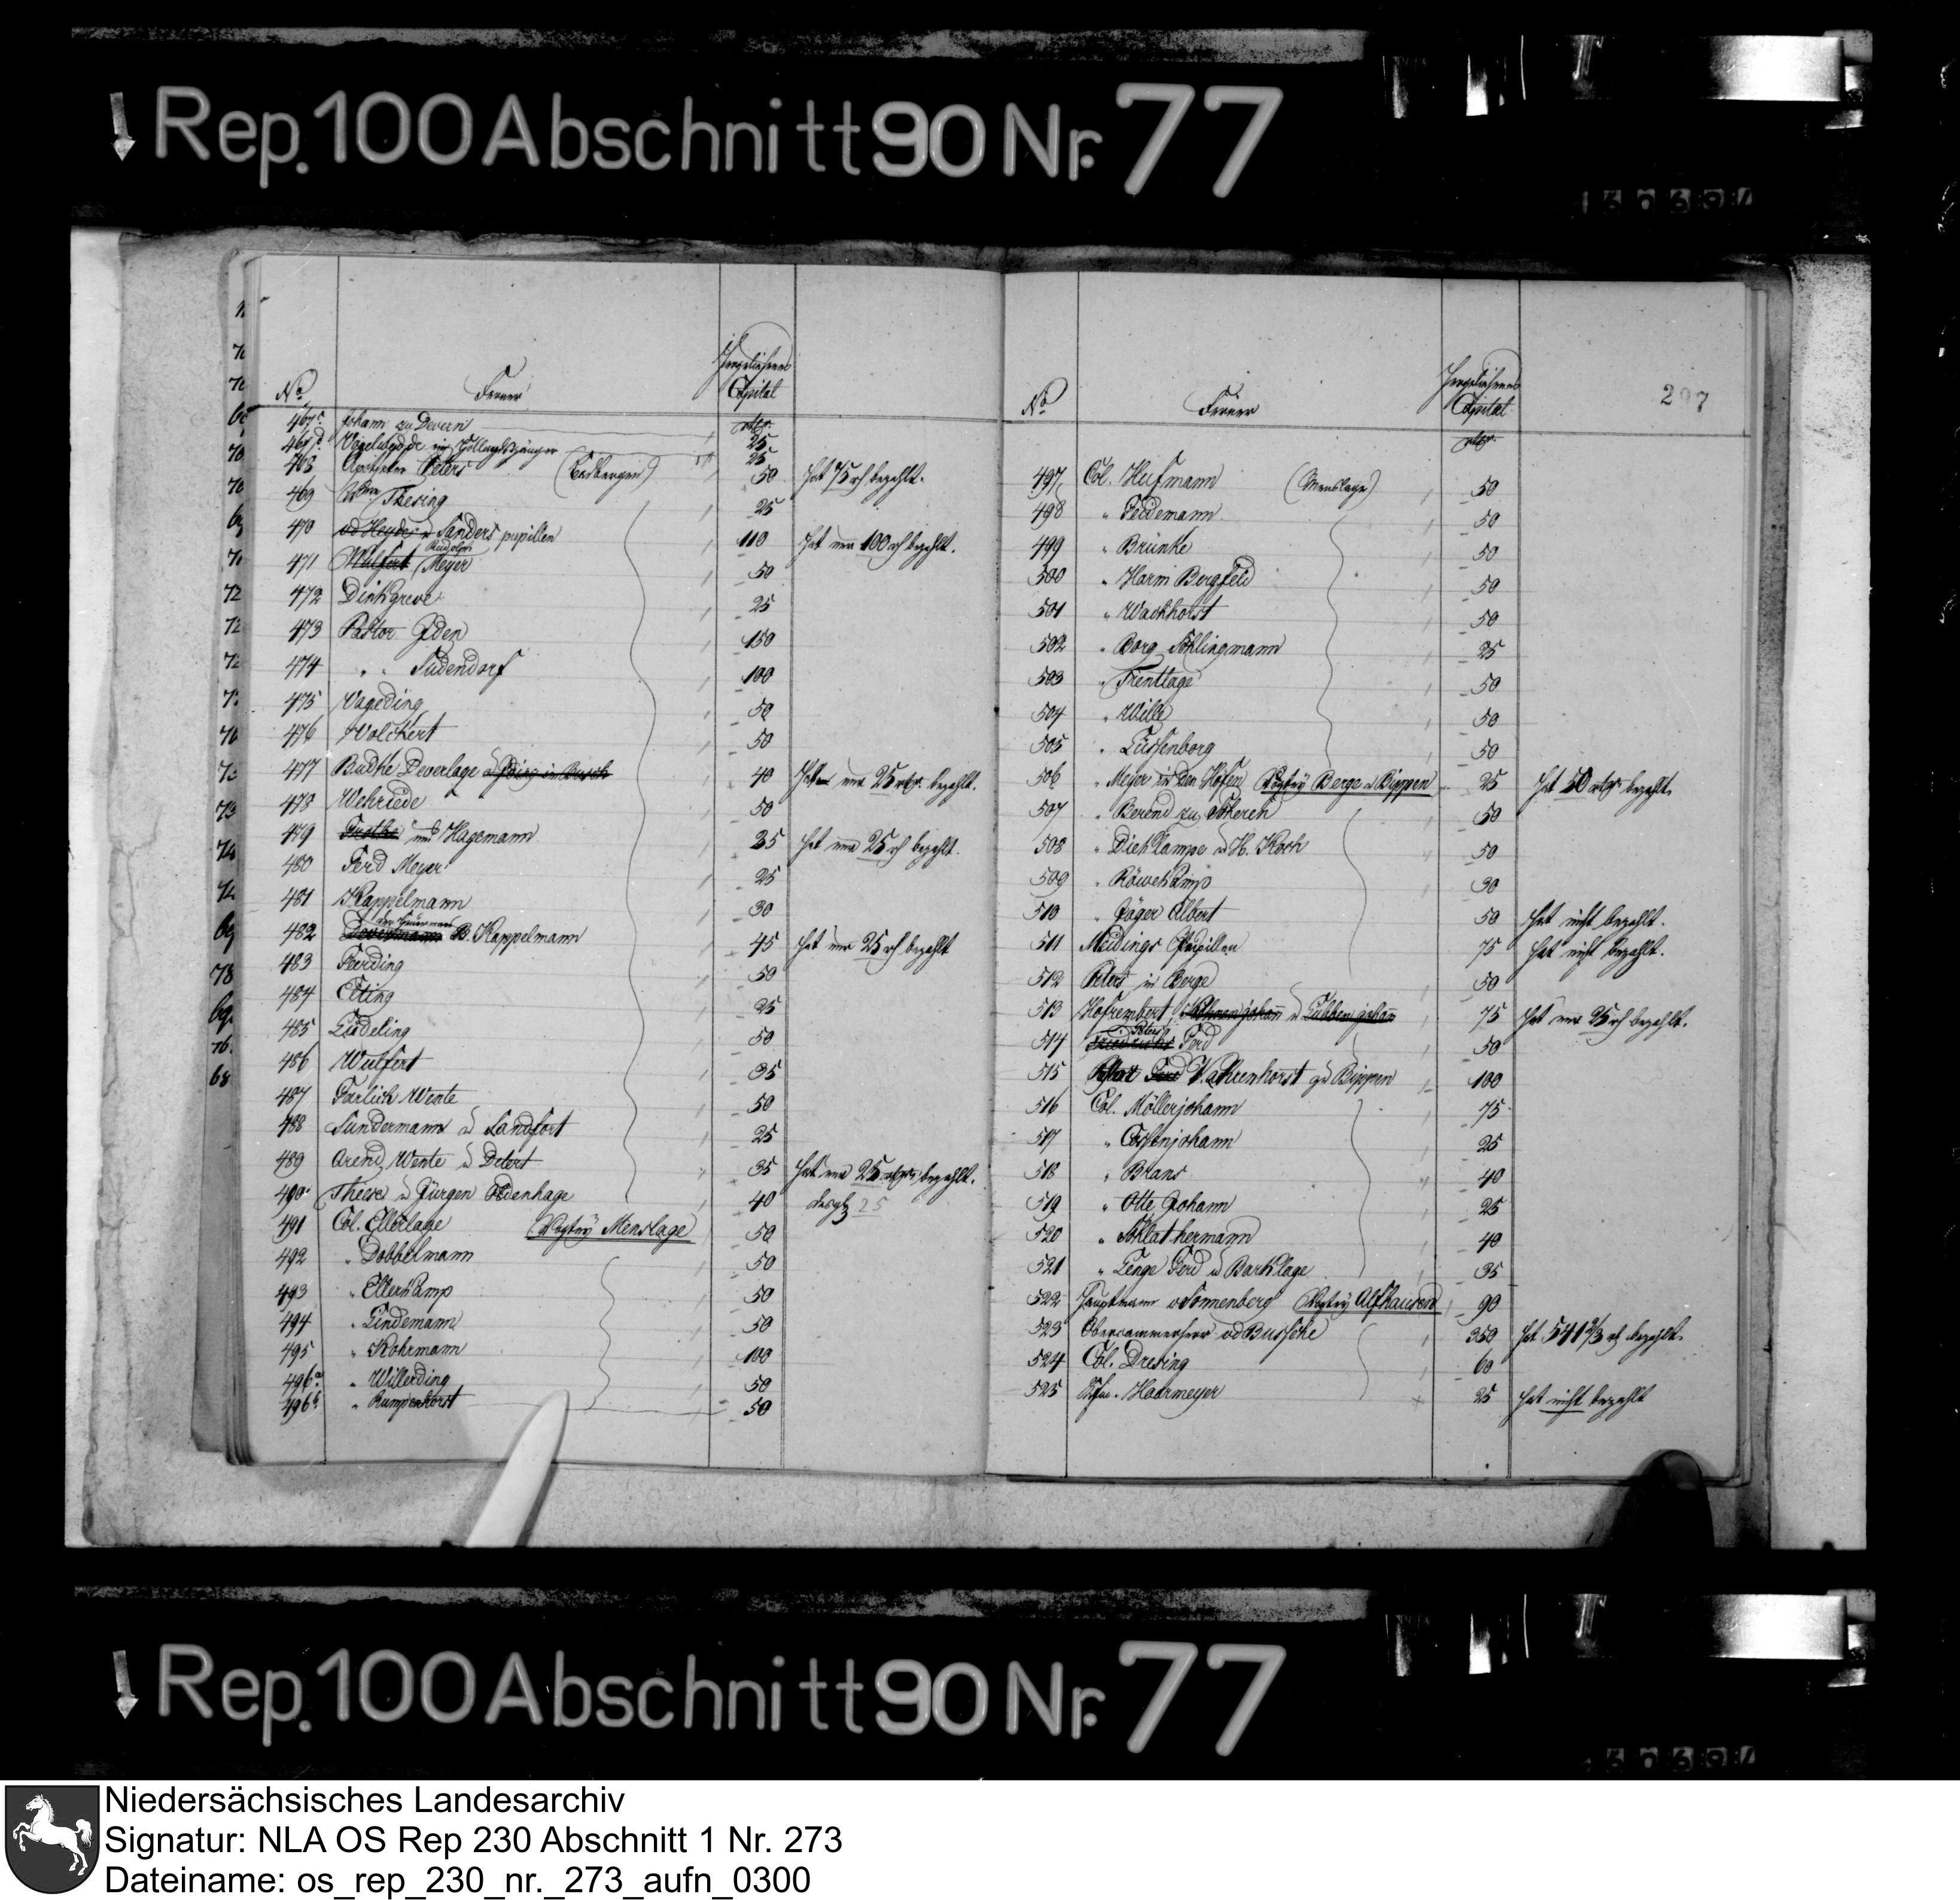 Rep. 100 Abschnitt 90 Nr. 77
No. Ferner Capital
467c. Johann zu Devern 25
467d. 25
468 Apotheker Peters (Badbergen) 50 hat 75 rh bezahlt.
469 Thesing 25
470 Sanders pupillen 110 hat nur 100 rh bezahlt.
471 Wulfert Rudolph Meyer 50
472 Dinkgreve 25
473 Pastor Iden 150
474 " " Sudendorf 100
475 Vageding 50
476 Wolchert 50
477 Budke Deverlage 40 nur 25 rtlr. bezahlt.
478 Wehriede 50
479 und Hagemann 35 hat nur 25 rh bezahlt.
480 Ferd Meyer 25
481 Kappelmann 30
482 B. Kappelmann 45 hat nur 25 rh bezahlt
483 Ferding 50
484 Elting 25
485 Lindeling 50
486 Wulfert 35
487 Wente 50
488 Sundermann u Landfort 25
489 Arend Wente u Detert 35 hat nur 25 rtlr. bezahlt.
490. These u Jürgen 40 25
491 Col. Ellerlage Vogtey Menslage 50
492 " Dobbelmann 50
493 " Ellerkamp 50
494 " Lindemann 50
495 " Kohrmann 100
496a. " Willerding 50
496b. " Rumpenhorst 50
297
No. Ferner Capital
rtlr.
497 Col. Hufmann (Menslage) 50
498 " Feldemann 50
499 " Brünke 50
500 " Harm Bergfeld 50
501 " Wackhorst 50
502 " Borg Schlingmann 25
503 " Trentlage 50
504 " Wille 50
505 " Lüssenborg 50
506 " Meyer in den Höfen Vogtey Berge u Bippen 25 hat 50 rtlr bezahlt.
507 " Berend zu 50
508 " Diekkampe u H. Koch 50
509 " Röwekamp 30
510 " Jäger Albert 50 hat nicht bezahlt.
511 Meidings Pupillen 75 hat nicht bezahlt.
512 Peters in Berge 50
513 Hofrembert, u Lübben johan 75 hat nur 25 rh bezahlt.
514 Ferd 50
515 Wahrenhorst zu Bippen 100
516 Col. Möllerjohann 75
517 " 25
518 " Brans 40
519 " Otte Johann 25
520 " Schlathermann 40
521 " Lenge Ferd u Barklage 35
522 Hauptmann v Sonnenberg Vogtey Alfhausen 90
523 Obercammerherr vd Bussche 350 hat 541 2/3 rh bezahlt.
524 Col. Dresing 60
525 Haarmeyer 25 hat nicht bezahlt
Rep. 100 Abschnitt 90 Nr. 77
Niedersächsisches Landesarchiv
Signatur: NLA OS Rep 230 Abschnitt 1 Nr. 273
Dateiname: os_rep_230_nr._273_aufn_0300